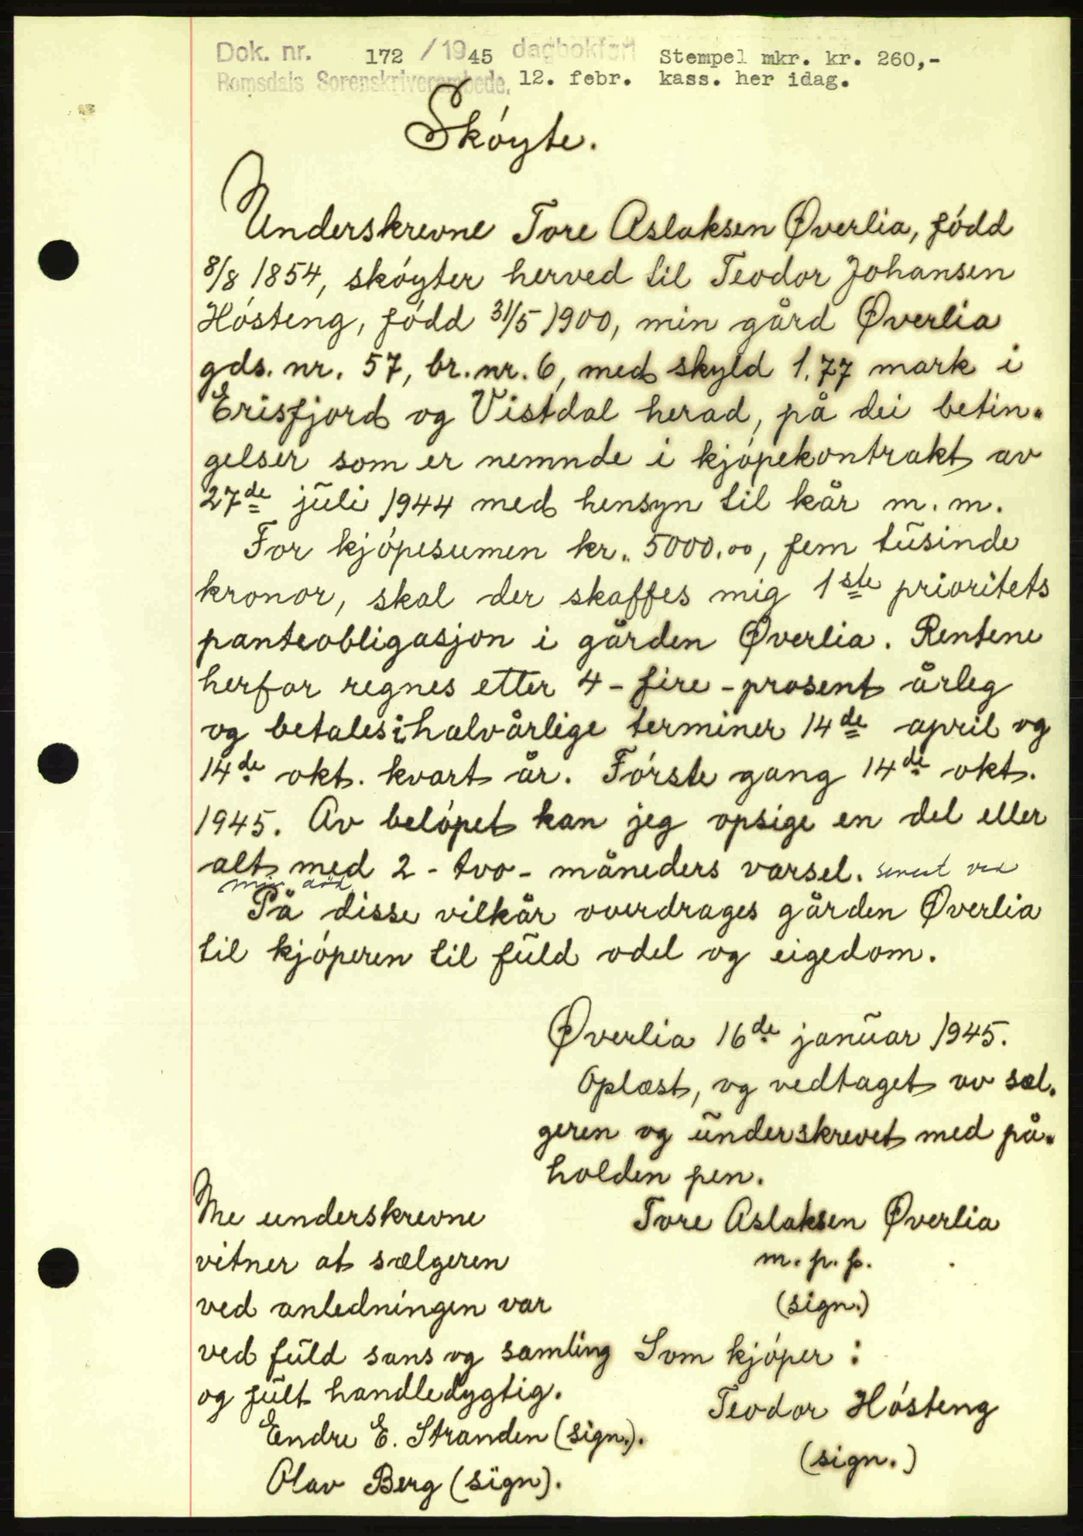 Dok. nr. 172 / 1945 dagbokført Stempel mkr. kr. 260,-
Romsdals Sorenskriverembede. 12. febr. kass. her idag.
Skóyte.
Underskrevne Tore Aslaksen Øverlia, fódd
8/8 1854, skóyter herved til Teodor Johansen
Hósteng, fódd 31/5 1900, min gård Øverlia
gds. nr. 57, br. nr. 6, med skyld 1.77 mark i
Erisfjord og Vistdal herad, på dei betin-
gelser som er nemnde i kjópekontrakt av
27de juli 1944 med hensyn til kår m. m.
For kjópesumen kr. 5000.00, fem tusinde
kronor, skal der skaffes mig 1ste prioritets
panteobligasjon i gården Øverlia. Rentene
herfor regnes etter 4 - fire - prosent årleg
og betales i halvårlige terminer 14de april og
14de okt. kvart år. Fórste gang 14de okt.
1945. Av belópet kan jeg opsige en del eller
alt med 2 - tvo - måneders varsel. senest ved
min död
På disse vilkår overdrages gården Øverlia
til kjóperen til fuld odel og eigedom.
Øverlia 16de januar 1945.
Oplæst, og vedtaget av sæl-
geren og underskrevet med på-
holden pen.
Me underskrevne Tore Aslaksen Øverlia
vitner at sælgeren m. p. p.
ved anledningen var (sign.)
ved fuld sans og samling Som kjóper :
og fult handledygtig. Teodor Hósteng
Endre E. Stranden (sign.). (sign.)
Olav Berg (sign).